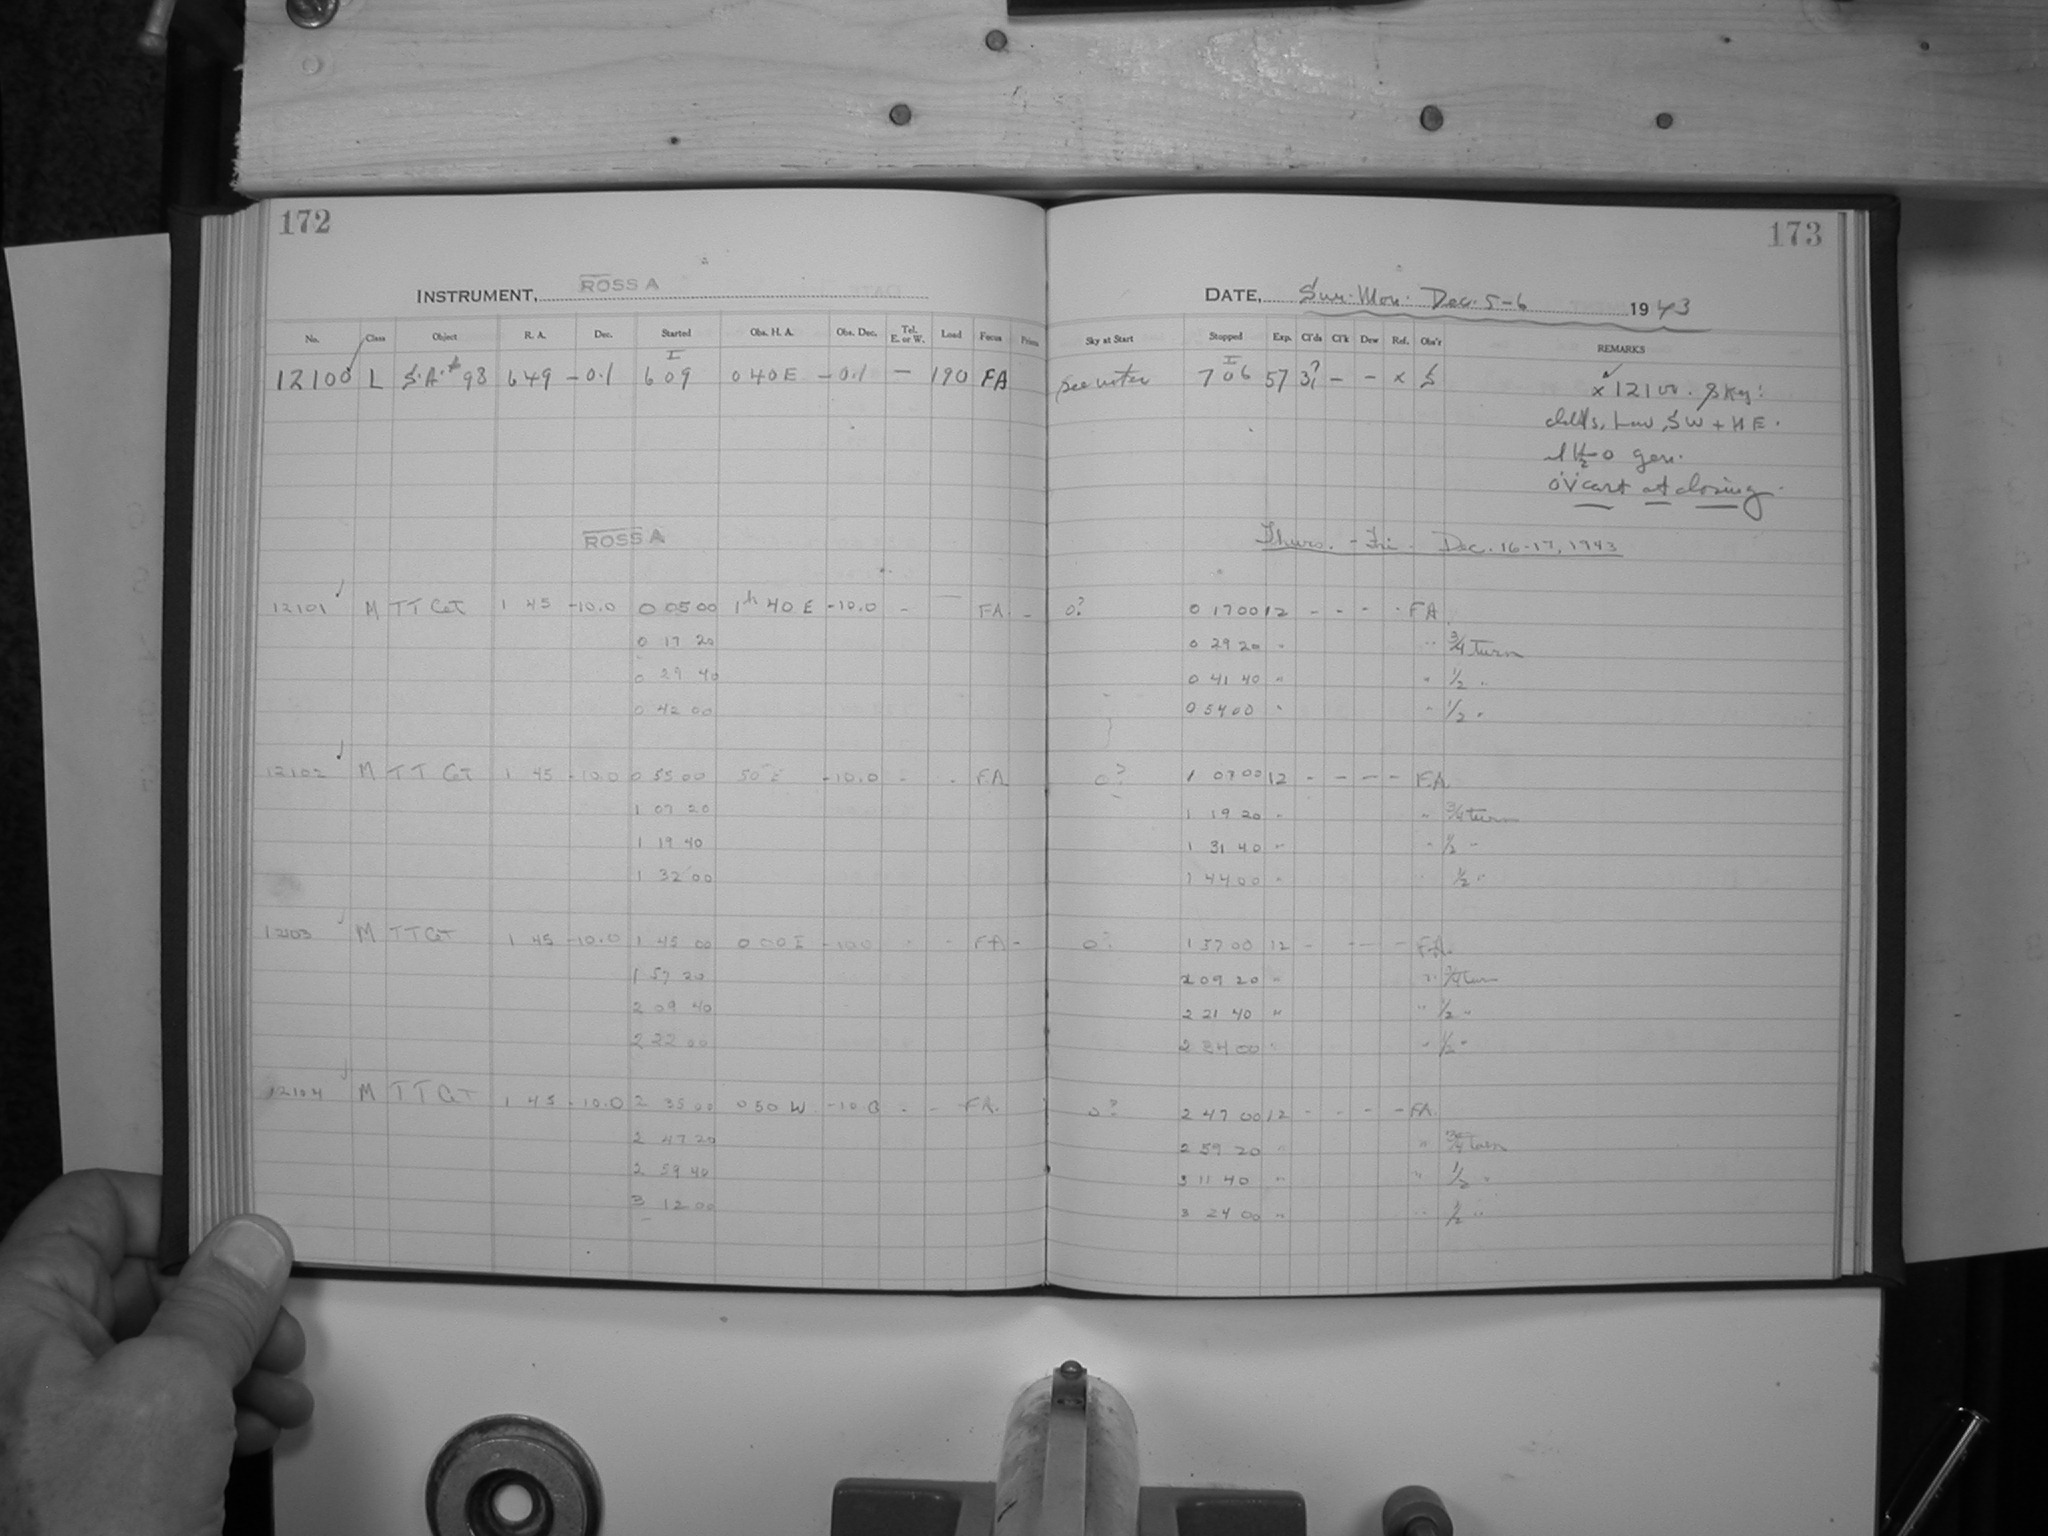 172
173
INSTRUMENT, ROSS A
DATE, Sun. Mon. Dec. 5-6 1943
No. Class Object R. A. Dec. Started Obs. H. A. Obs. Dec. Tel. E. or W. Load Focus Prism Sky at Start Stopped Exp. Cl'ds Cl'k Dew Ref. Obs'r REMARKS
12100 L S.A. 98 6 49 -0.1 6 09 0 40 E -0.1 — 190 FA see notes 7 06 57 3? - - x S
x 12100. Sky:
clds, low, SW + NE.
gen.
o'v'cast at closing.
ROSS A
Thurs. - Fri - Dec. 16-17, 1943
12101 M TT Cet 1 45 -10.0 0 05 00 1h 40 E -10.0 - FA - 0? 0 17 00 12 - - - - FA
0 17 20 0 29 20 " " 3/4 turn
0 29 40 0 41 40 " " 1/2 "
0 42 00 0 54 00 " " 1/2 "
12102 M TT Cet 1 45 -10.0 0 55 00 50 E -10.0 - - FA 0? 1 07 00 12 - - - - FA
1 07 20 1 19 20 " " 3/4 turn
1 19 40 1 31 40 " " 1/2 "
1 32 00 1 44 00 " " 1/2 "
12103 M TT Cet 1 45 -10.0 1 45 00 0 00 E -10.0 - - FA - 0? 1 57 00 12 - - - - FA
1 57 20 2 09 20 " " 3/4 turn
2 09 40 2 21 40 " " 1/2 "
2 22 00 2 34 00 " " 1/2 "
12104 M TT Cet 1 45 -10.0 2 35 00 0 50 W -10.0 - - FA. 0? 2 47 00 12 - - - - FA.
2 47 20 2 59 20 " " 3/4 turn
2 59 40 3 11 40 " " 1/2 "
3 12 00 3 24 00 " " 1/2 "